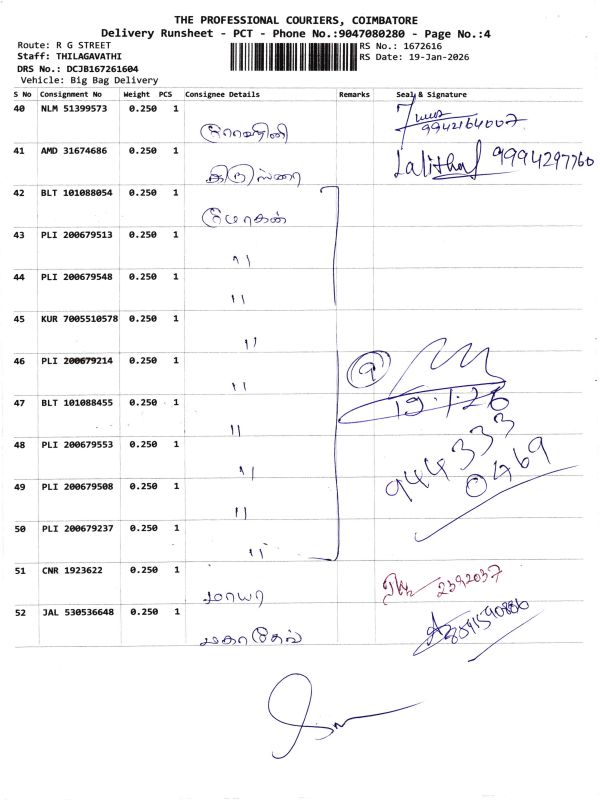 THE PROFESSIONAL COURIERS, COIMBATORE
Delivery Runsheet - PCT - Phone No.:9047080280 - Page No.:4
Route: R G STREET
Staff: THILAGAVATHI
DRS No.: DCJB167261604
Vehicle: Big Bag Delivery
RS No.: 1672616
RS Date: 19-Jan-2026
S No Consignment No Weight PCS Consignee Details Remarks Seal & Signature
40 NLM 51399573 0.250 1
9942164007
41 AMD 31674686 0.250 1 Lalitha 9994297760
42 BLT 101088054 0.250 1 மோகன்
43 PLI 200679513 0.250 1 "
44 PLI 200679548 0.250 1 "
45 KUR 7005510578 0.250 1 "
46 PLI 200679214 0.250 1 " 9
47 BLT 101088455 0.250 1 " 19.1.26
48 PLI 200679553 0.250 1 " 944333
49 PLI 200679508 0.250 1 " 0469
50 PLI 200679237 0.250 1 "
51 CNR 1923622 0.250 1 மாயா 2392037
52 JAL 530536648 0.250 1